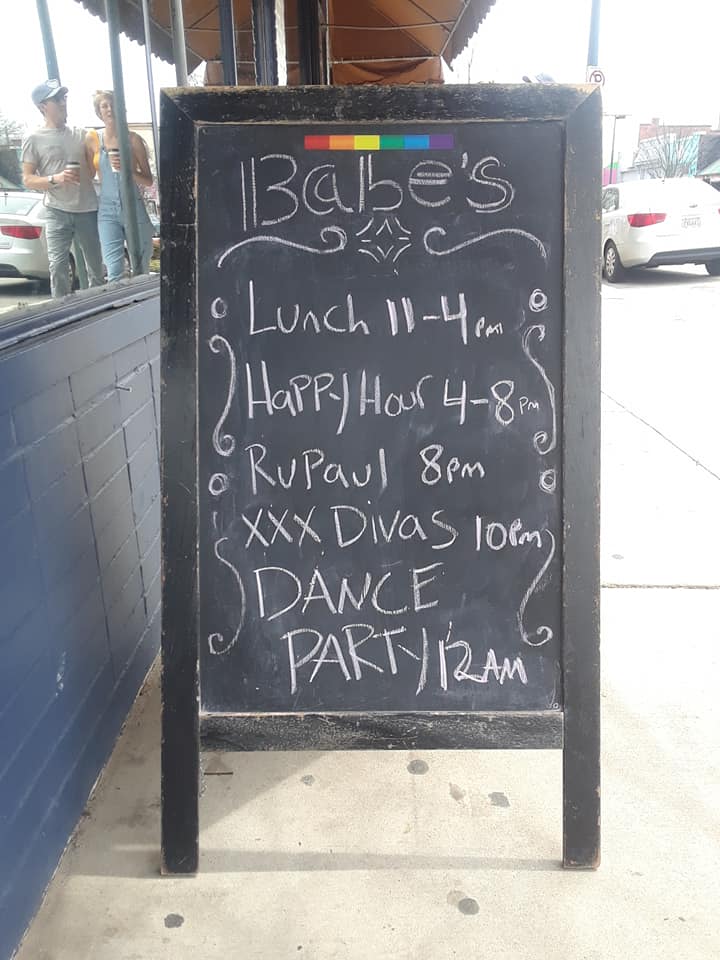 Babe's
Lunch 11-4pm
Happy Hour 4-8pm
RuPaul 8pm
XXX Divas 10pm
DANCE
PARTY 12AM